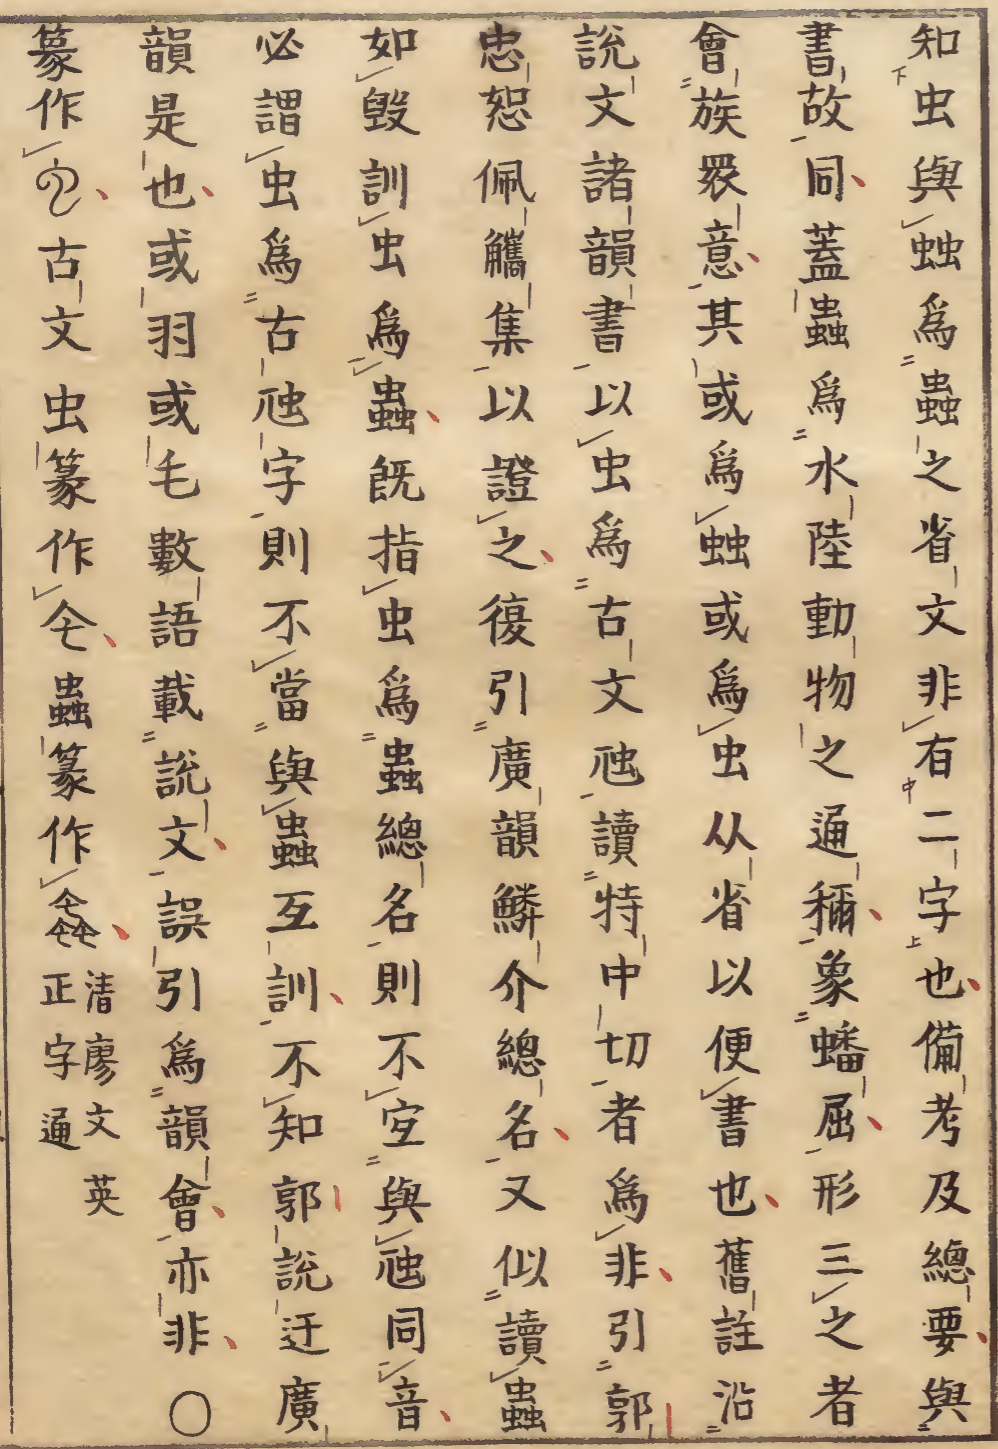 知虫與䖵爲蟲之省文非有二字也備考及總要與
書故同蓋蟲爲水陸動物之通稱象蟠屈形三之者
會族衆意其或爲䖵或爲虫从省以便書也舊註沿
說文諸韻書以虫爲古文虺讀特中切者爲非引郭
忠恕佩觿集以證之復引廣韻鱗介總名又似讀蟲
如毀訓虫爲蟲旣指虫爲蟲總名則不宐與虺同音
必謂虫爲古虺字則不當與蟲互訓不知郭說迂廣
韻是也或羽或毛數語載說文誤引爲韻會亦非○
篆作古文虫篆作蟲篆作
清廖文英
正字通